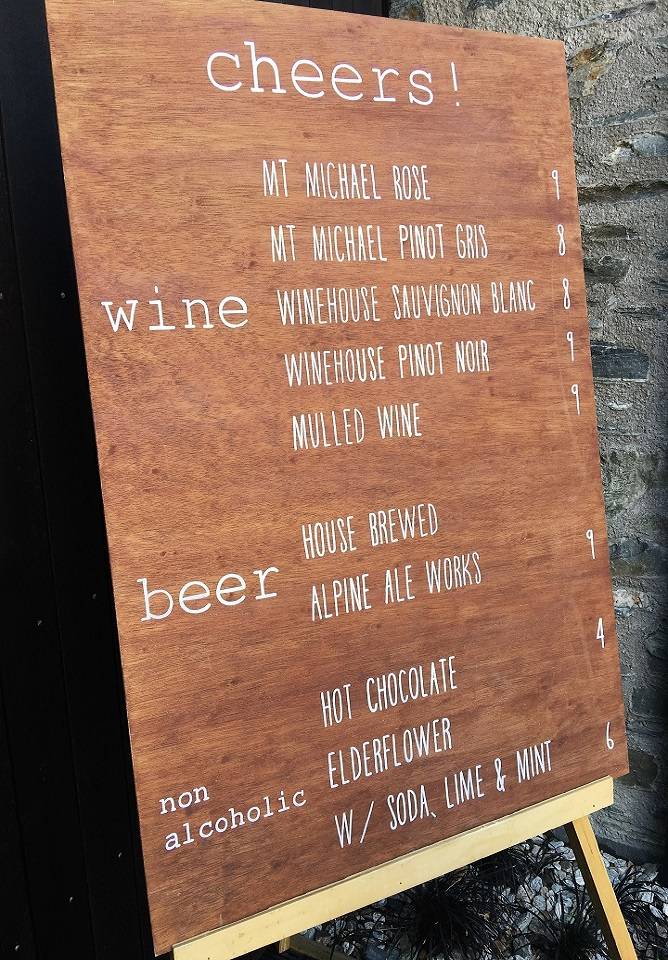 cheers!
MT MICHAEL ROSE 9
MT MICHAEL PINOT GRIS 8
wine WINEHOUSE SAUVIGNON BLANC 8
WINEHOUSE PINOT NOIR 9
MULLED WINE 9
HOUSE BREWED
beer ALPINE ALE WORKS 9
HOT CHOCOLATE 4
ELDERFLOWER
non
alcoholic W/ SODA, LIME & MINT 6